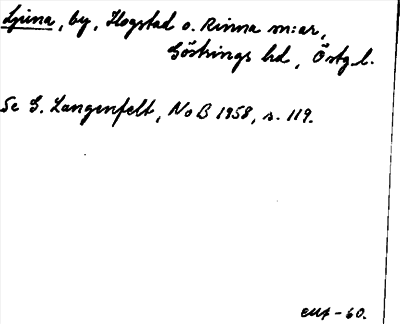 Ljuna, by, Hogstad o. Rinna m:ar,
Göstrings hd, Östg.l.
Se G. Langenfelt, NoB 1958, s. 119.
-60.